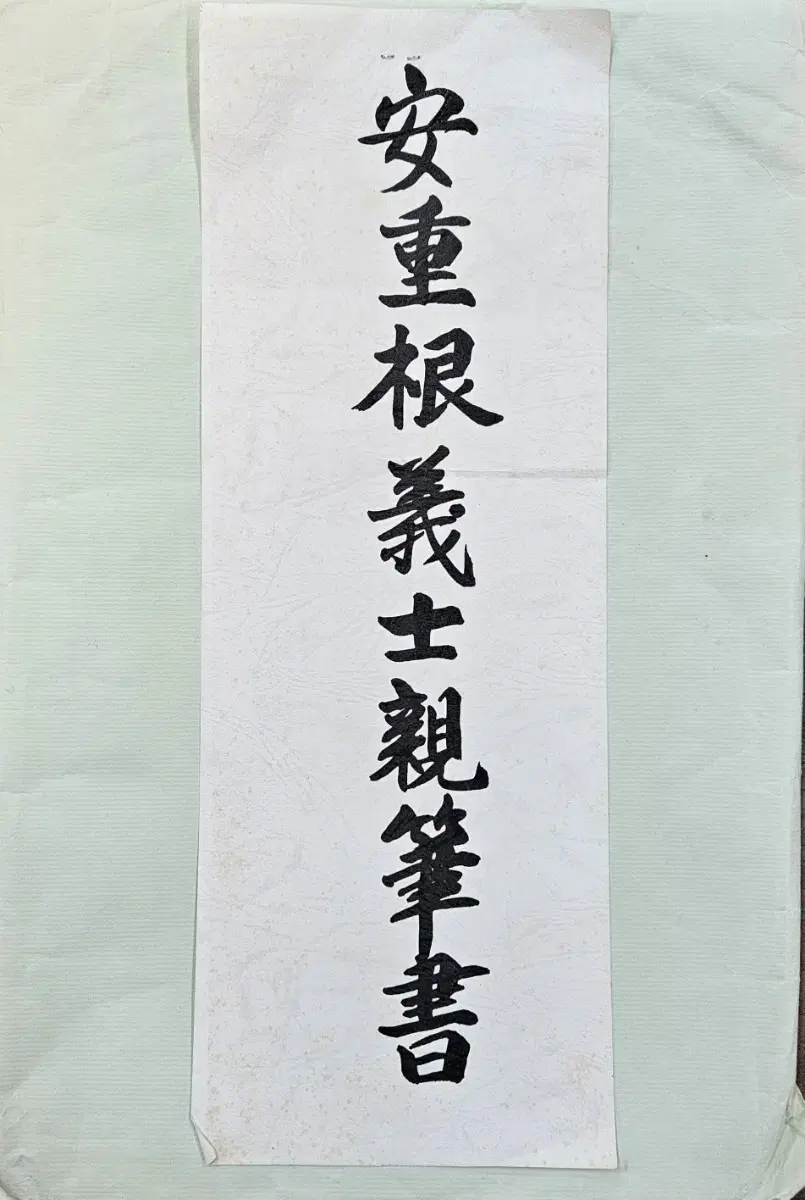 安重根義士親筆書